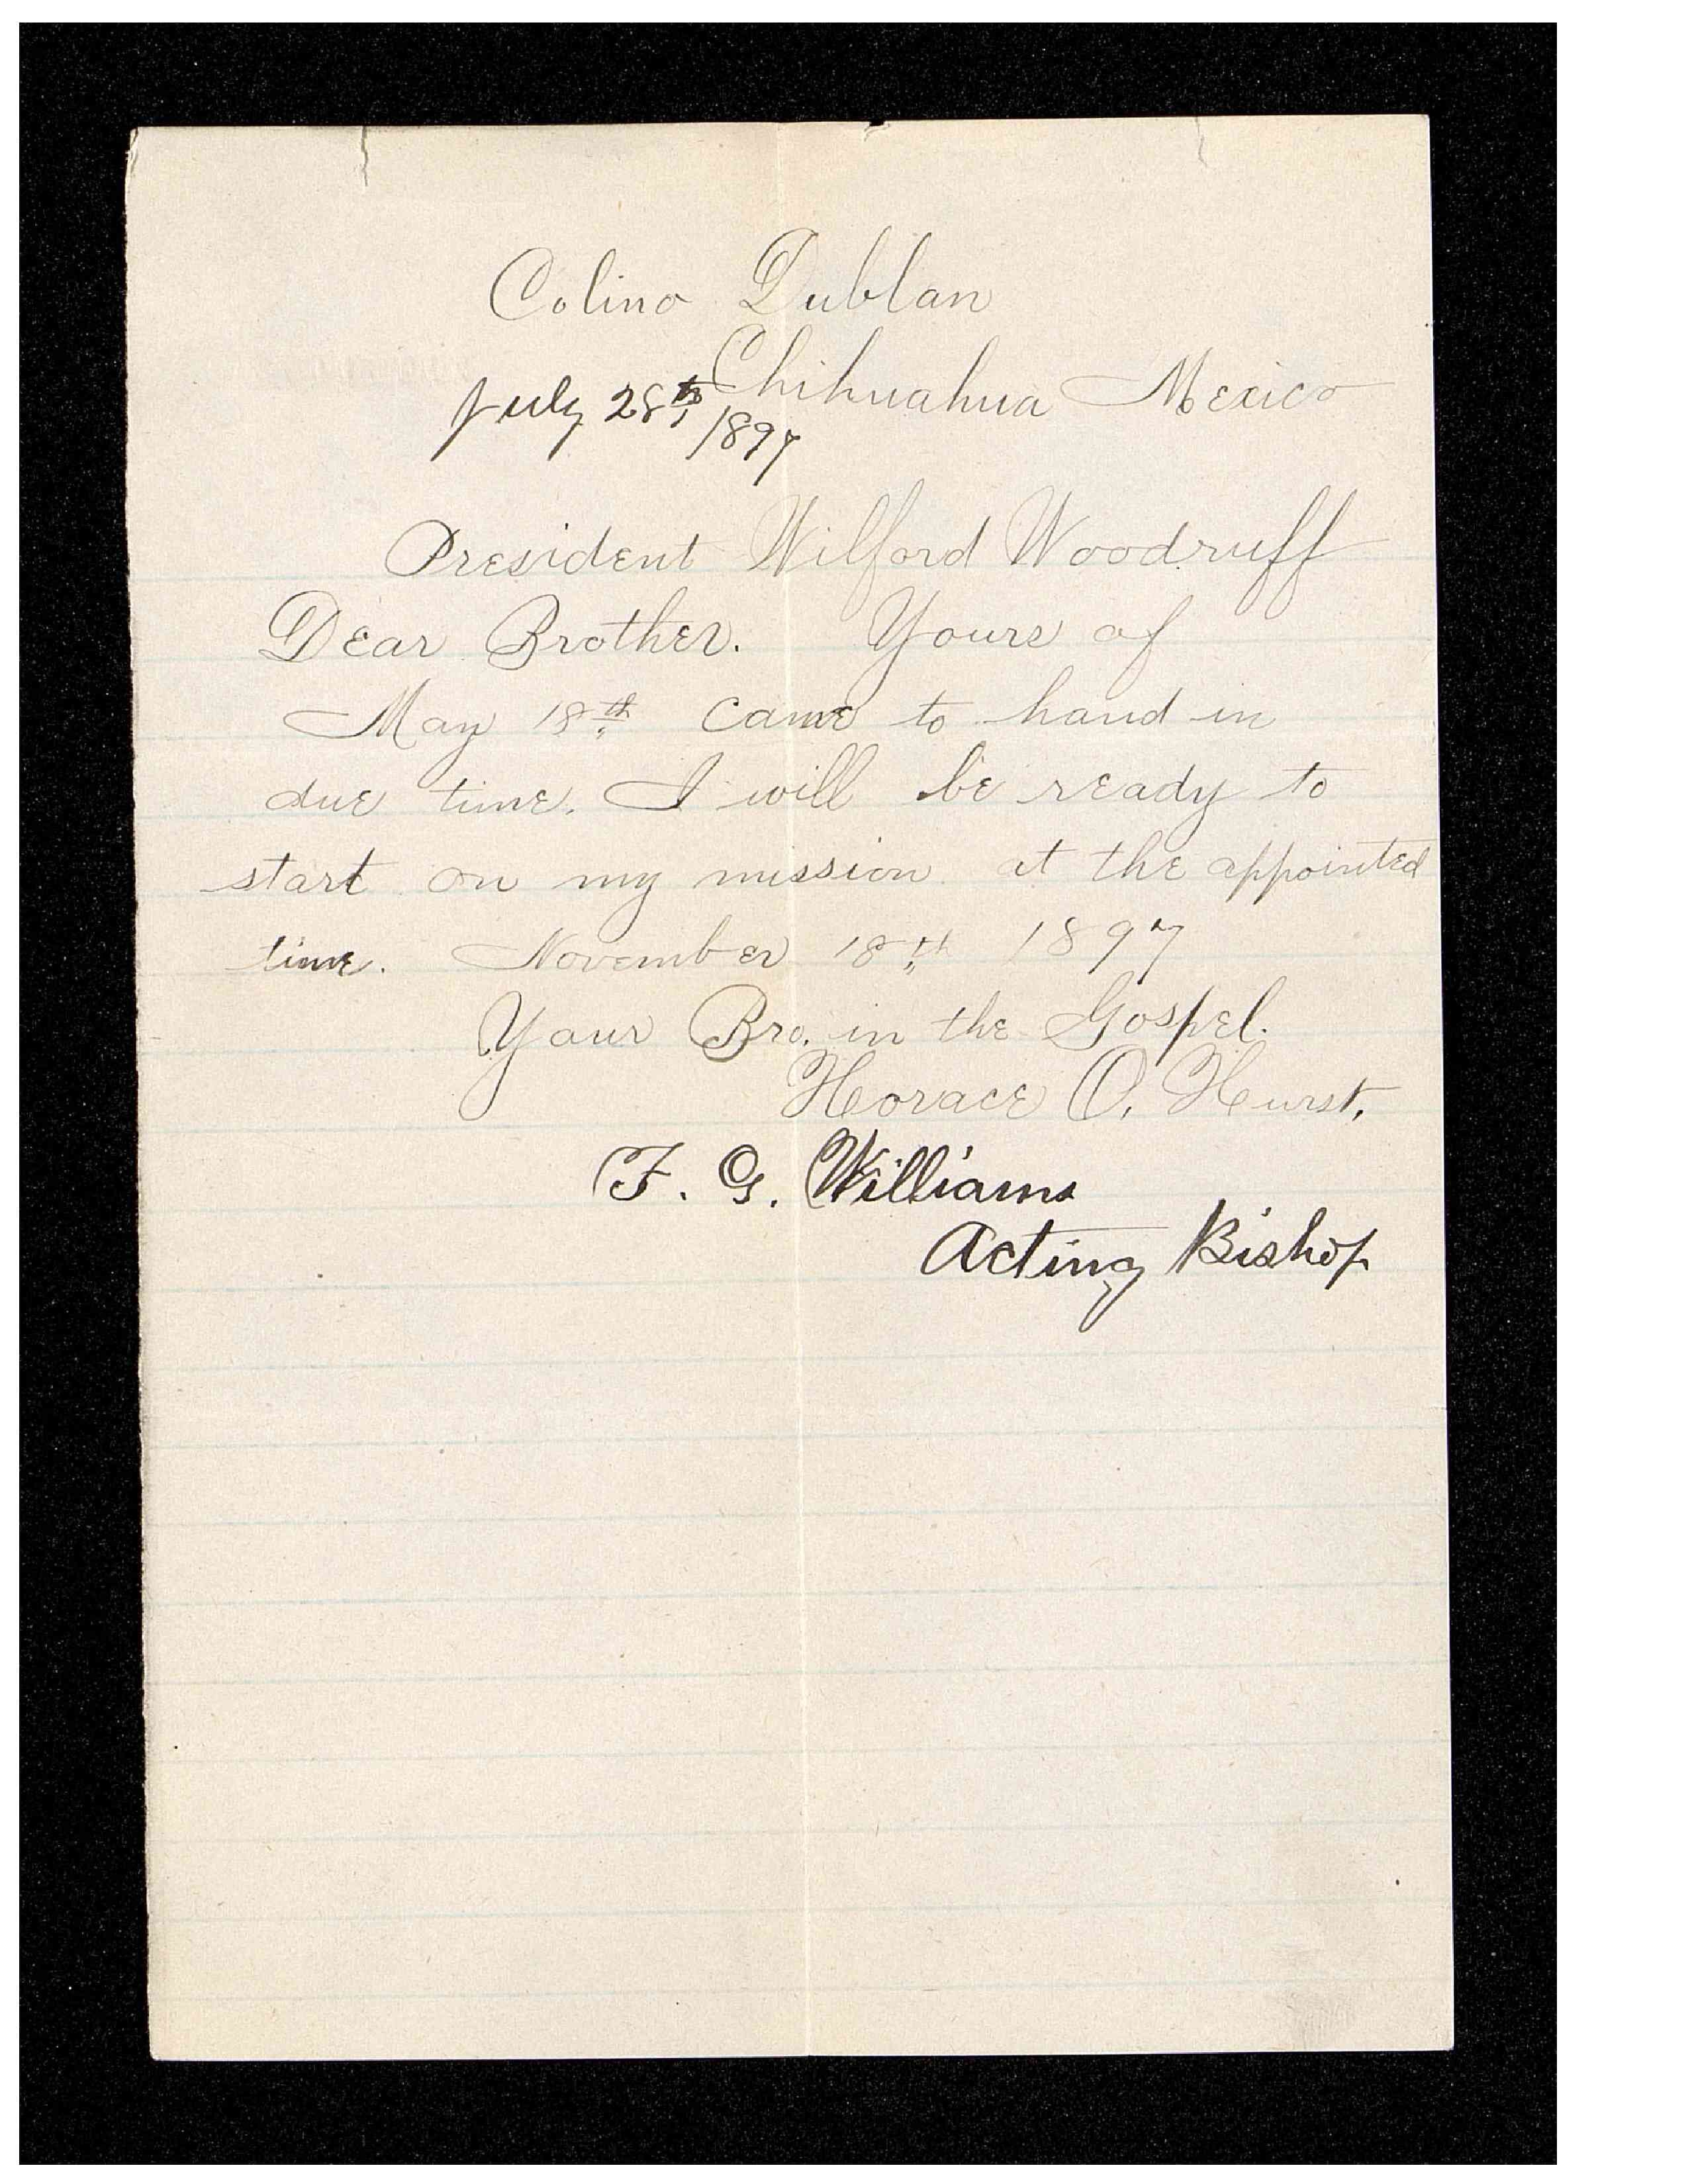 Colino Dublan
Chihuahua Mexico
July 28th, 1897
President Wilford Woodruff
Dear Brother. Yours of
May 18th came to hand in
due time. I will be ready to
start on my mission at the appointed
time. November 18th 1897
Your Bro. in the Gospel.
Horace O. Hurst,
F. G. Williams
Acting Bishop